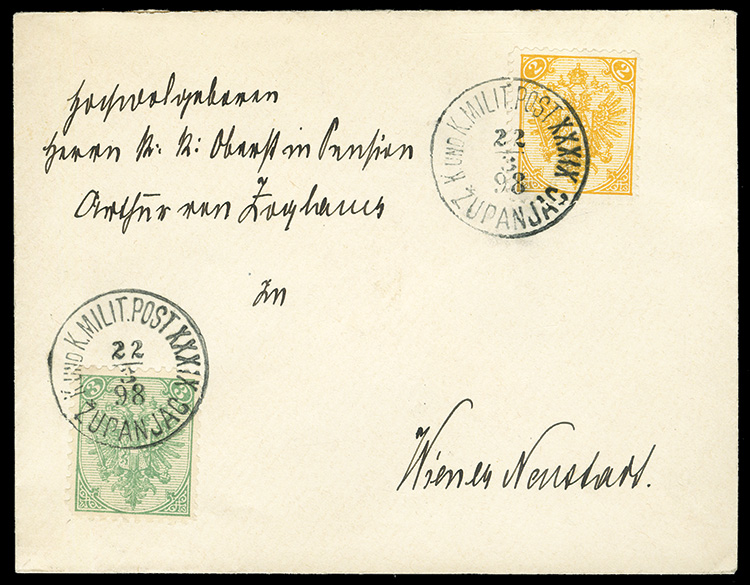 Hochwolgeboren
Herrn K. K. Oberst in Pension
Arthur von
In
Wiener Neustadt.
2 2
K UND K. MILIT. POST XXXIX
22
98
ŽUPANJAC
K UND K. MILIT. POST XXXIX
22
98
ŽUPANJAC
3 3